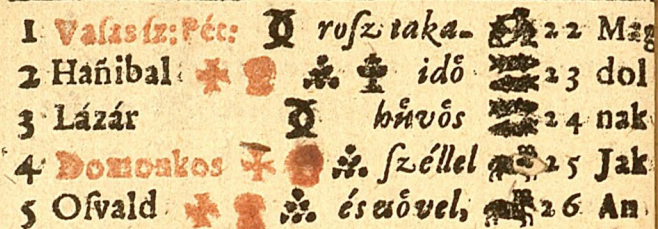 1 Vaſas ſz: Péc: roſz taka- 22 Mag
2 Hañibal idoͤ 23 dol
3 Lázár huͤvoͤs 24 nak
4 Domonkos ſzéllel 25 Jak
5 Oſvald és eſoͤvel, 26 An